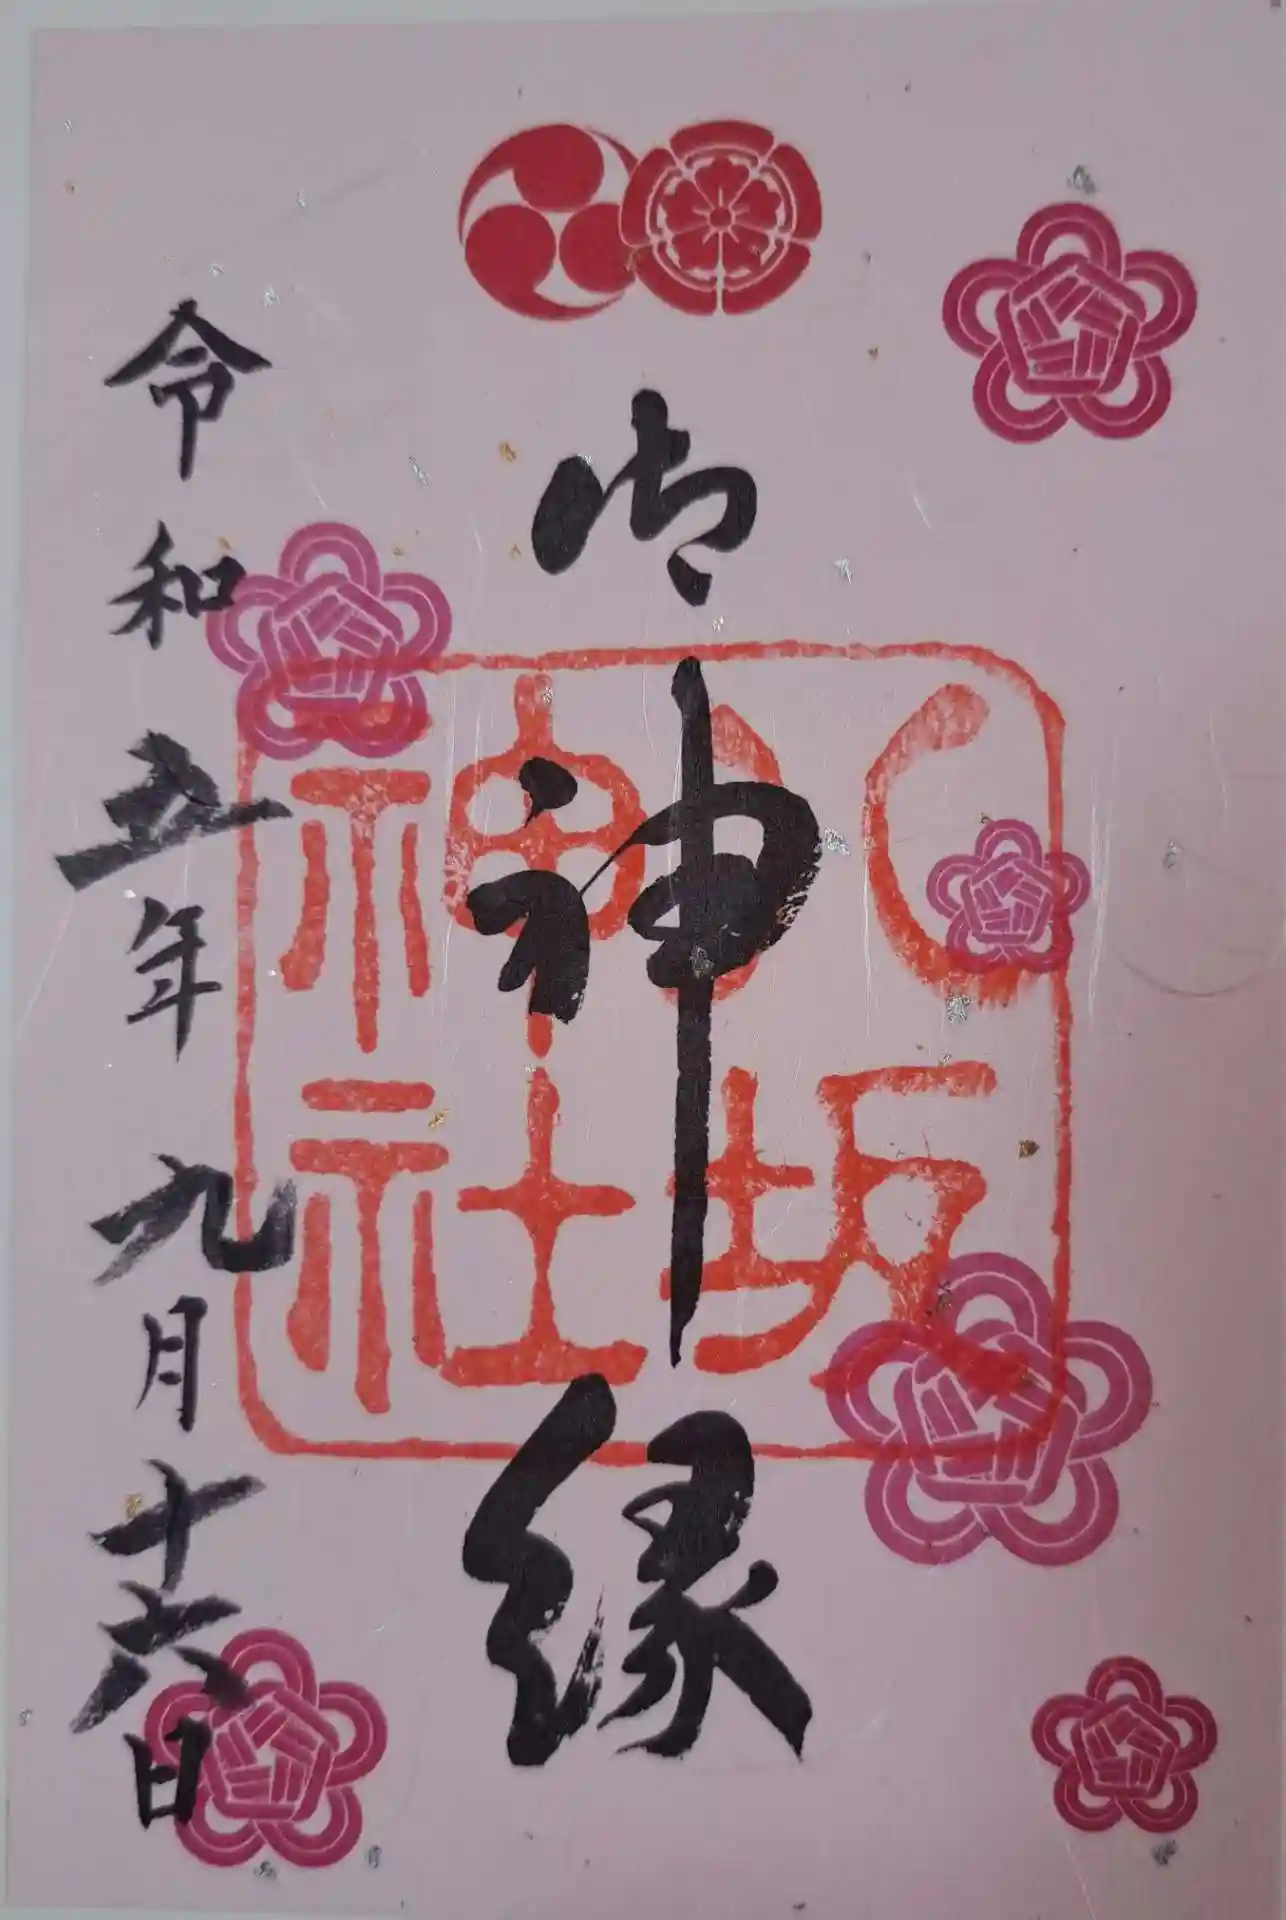 御神縁
八坂神社
令和五年九月十六日